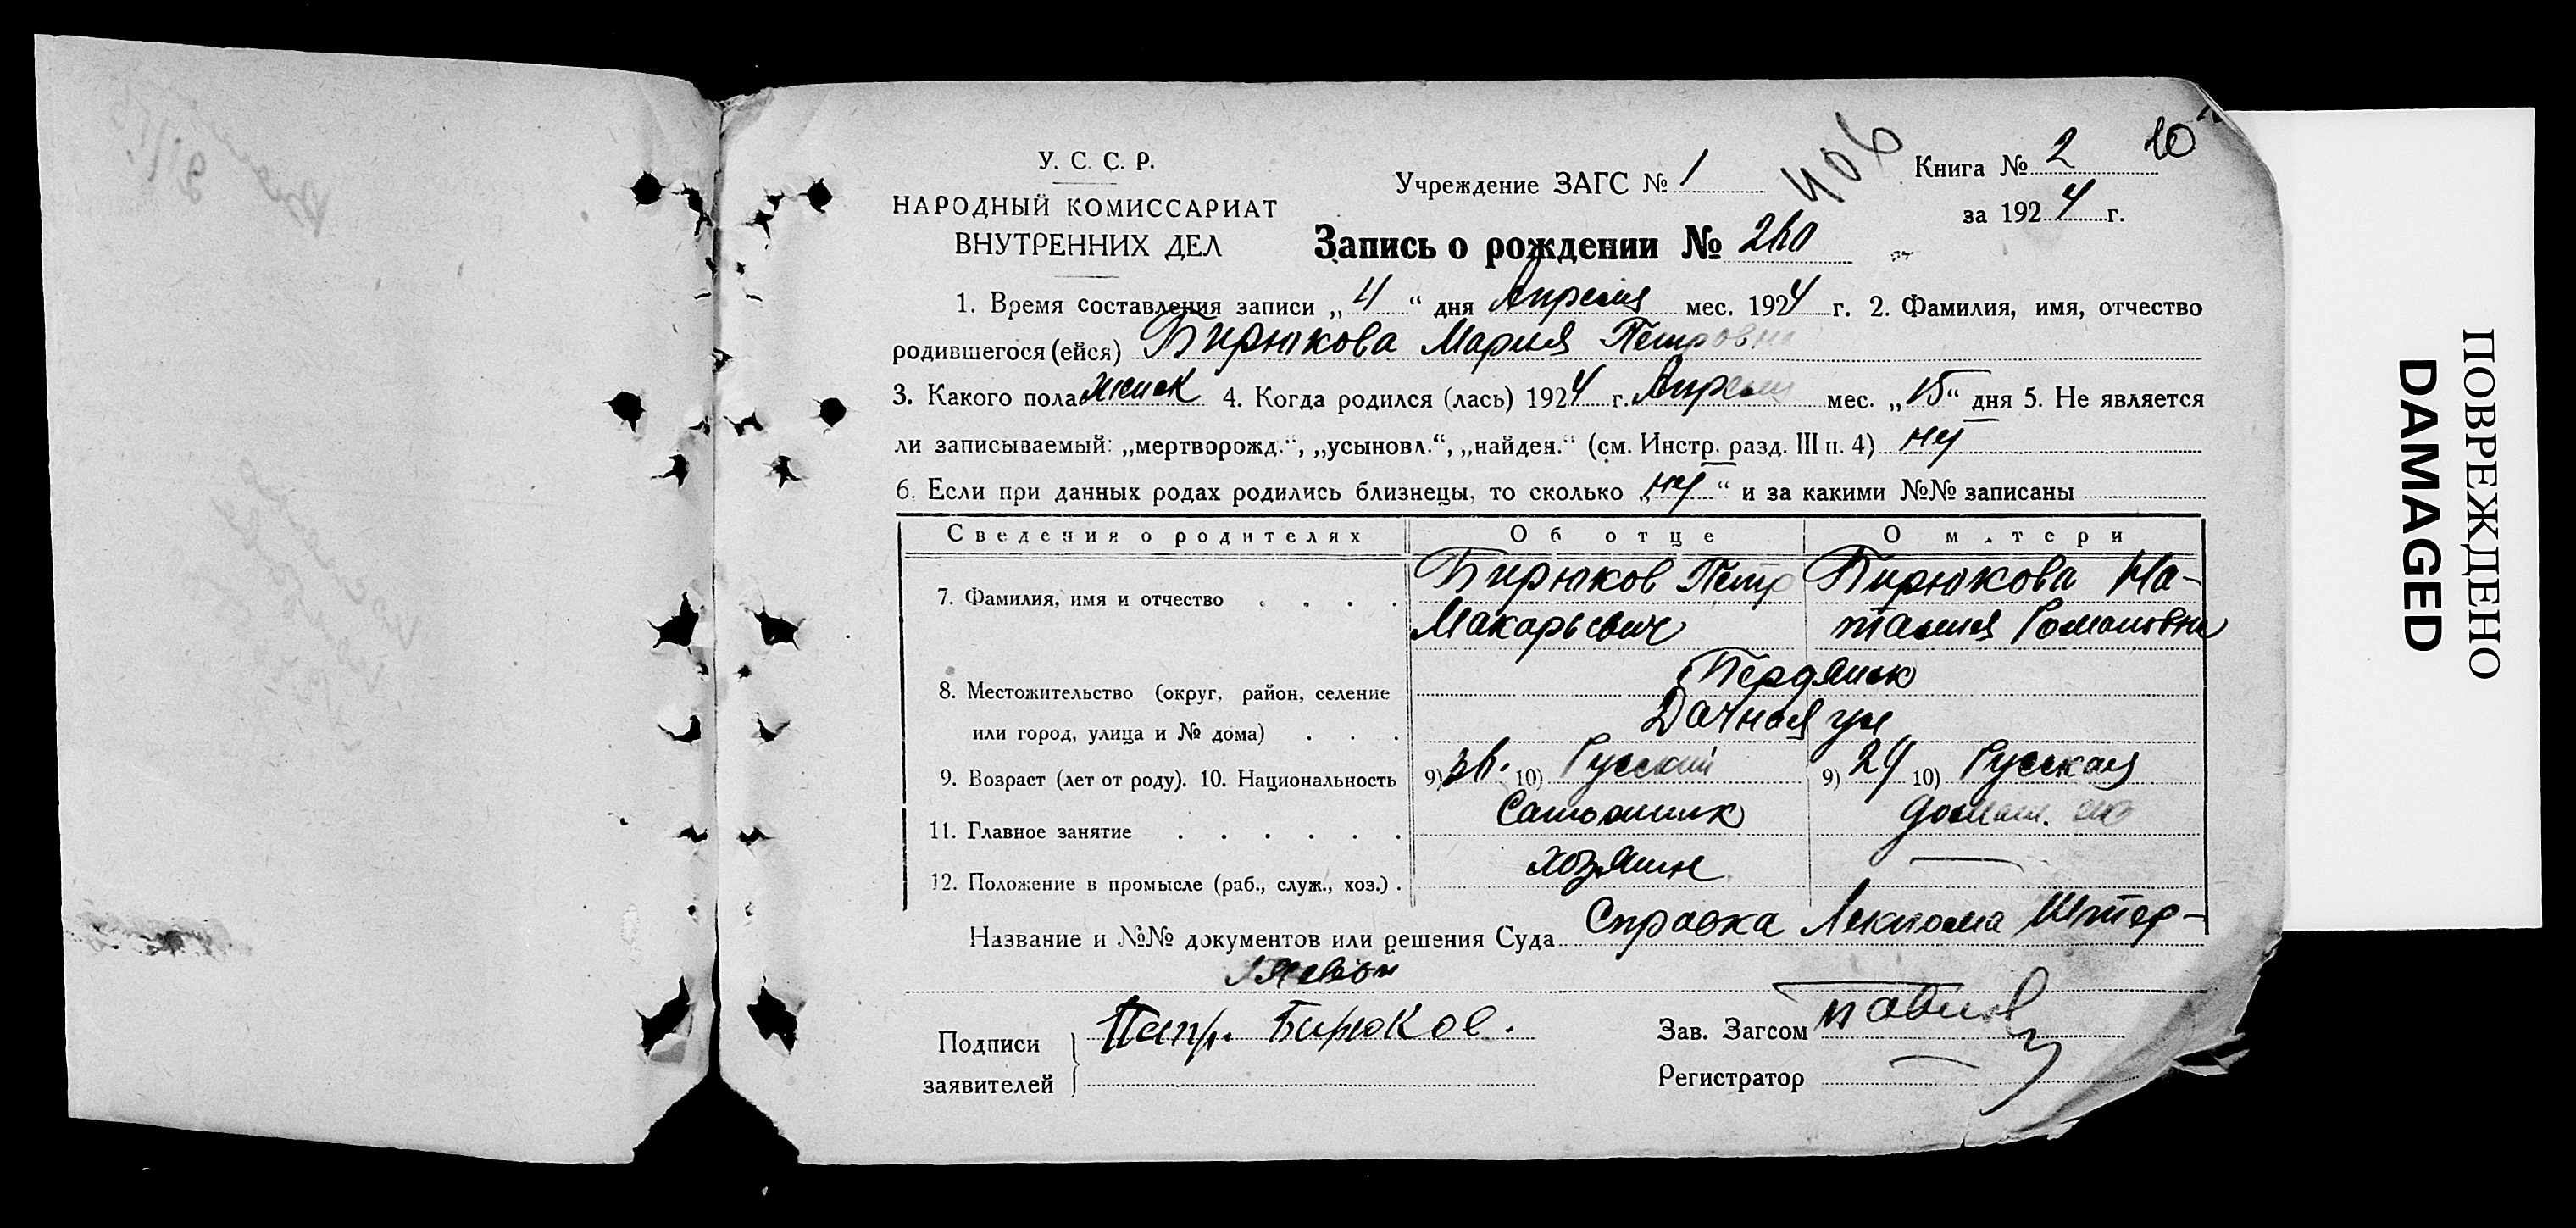 У. С. С. Р.
НАРОДНЫЙ КОМИССАРИАТ
ВНУТРЕННИХ ДЕЛ
Учреждение ЗАГС № 1
406
Книга № 2
10
за 1924 г.
Запись о рождении № 260
1. Время составления записи „4“ дня Апреля мес. 1924 г. 2. Фамилия, имя, отчество
родившегося (ейся) Бирюкова Мария Петровна
3. Какого пола женск 4. Когда родился (лась) 1924 г. Апреля мес. „15“ дня 5. Не является
ли записываемый: „мертворожд.“, „усыновл.“, „найден.“ (см. Инстр. разд. III п. 4) нет
6. Если при данных родах родились близнецы, то сколько „нет“ и за какими №№ записаны
Сведения о родителях Об отце О матери
7. Фамилия, имя и отчество Бирюков Петр Бирюкова На-
Макарьевич талия Романовна
8. Местожительство (округ, район, селение Бердянск
или город, улица и № дома) Дачная ул
9. Возраст (лет от роду). 10. Национальность 9) 36. 10) Русский 9) 24 10) Русская
11. Главное занятие Сапожник домаш. хоз
12. Положение в промысле (раб., служ., хоз.) хозяин —
Название и №№ документов или решения Суда Справка Лекпома
Подписи
заявителей
Бирюков.
Зав. Загсом
Регистратор
ПОВРЕЖДЕНО
DAMAGED